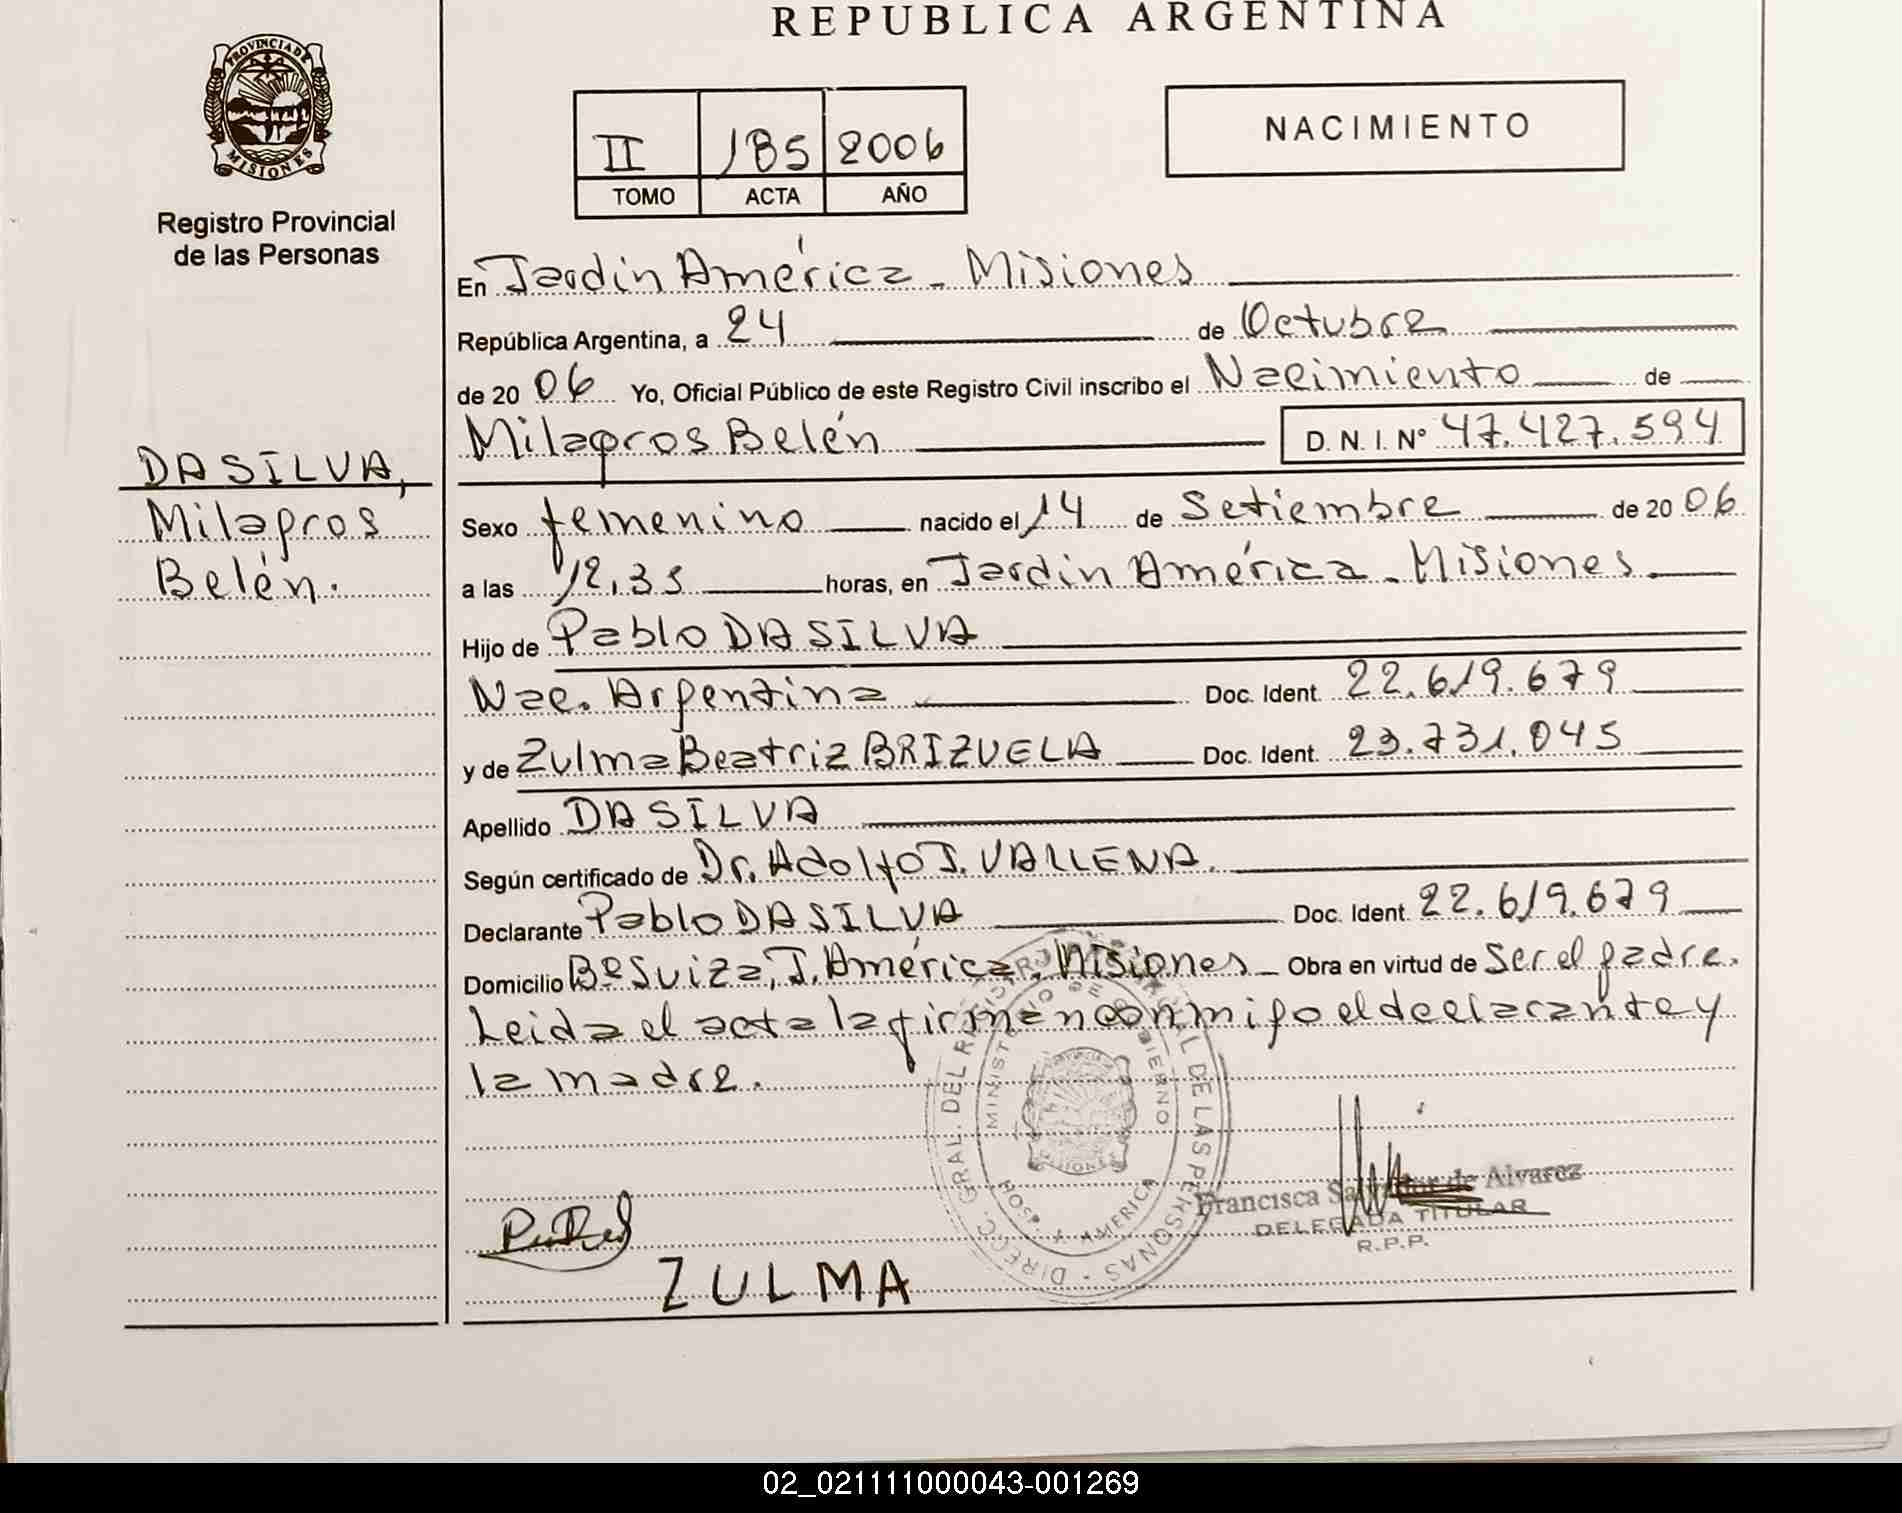 REPUBLICA ARGENTINA
PROVINCIA DE
MISIONES
Registro Provincial
de las Personas
II 185 2006
TOMO ACTA AÑO
NACIMIENTO
En Jardín América - Misiones
República Argentina, a 24 de Octubre
de 20 06 Yo, Oficial Público de este Registro Civil inscribo el Nacimiento de
Milagros Belén D. N. I. Nº 47.427.594
DA SILVA,
Milagros
Belén.
Sexo femenino nacido el 14 de Setiembre de 20 06
a las 12,35 horas, en Jardín América - Misiones
Hijo de Pablo DA SILVA
Nac. Argentina Doc. Ident. 22.619.679
y de Zulma Beatriz BRIZUELA Doc. Ident. 23.731.045
Apellido DA SILVA
Según certificado de Dr. Adolfo J. VALLENA.
Declarante Pablo DA SILVA Doc. Ident. 22.619.679
Domicilio Bº Suiza, J. América, Misiones Obra en virtud de ser el padre.
Leida el acta la firman conmigo el declarante y
la madre.
DIRECC. GRAL. DEL DE LAS PERSONAS
MINISTERIO DE GOBIERNO
MISIONES
HOSP. J. AMERICA
Francisca Salvador de Alvarez
DELEGADA TITULAR
R.P.P.
ZULMA
02_021111000043-001269